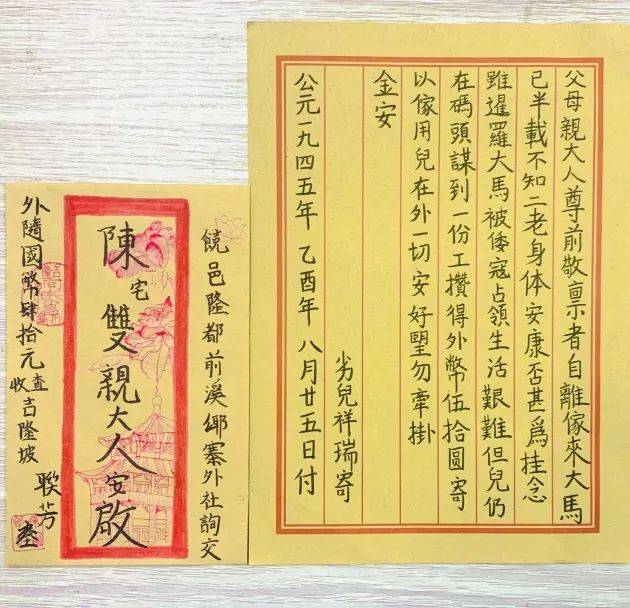 父母親大人尊前敬禀者自離傢來大馬
已半載不知二老身体安康否甚爲挂念
雖暹羅大馬被倭寇占領生活艱難但兒仍
在碼頭謀到一份工攢得外幣伍拾圓寄
以傢用兒在外一切安好朢勿牽掛
金安
劣兒祥瑞寄
公元一九四五年 乙酉年 八月廿五日付
饒邑隆都前溪鄉寨外社詢交
陳宅雙親大人安啟
外隨國幣肆拾元查收吉隆坡 聯芳